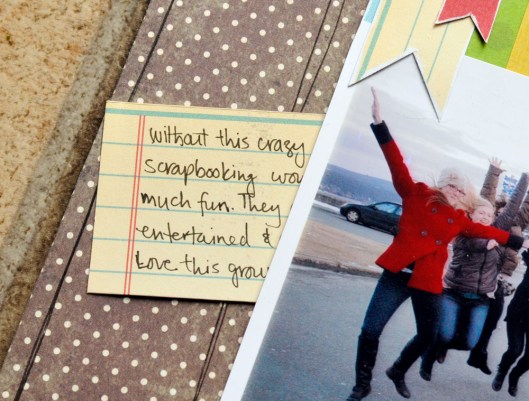 without this crazy
scrapbooking
much fun. They
entertained &
Love this